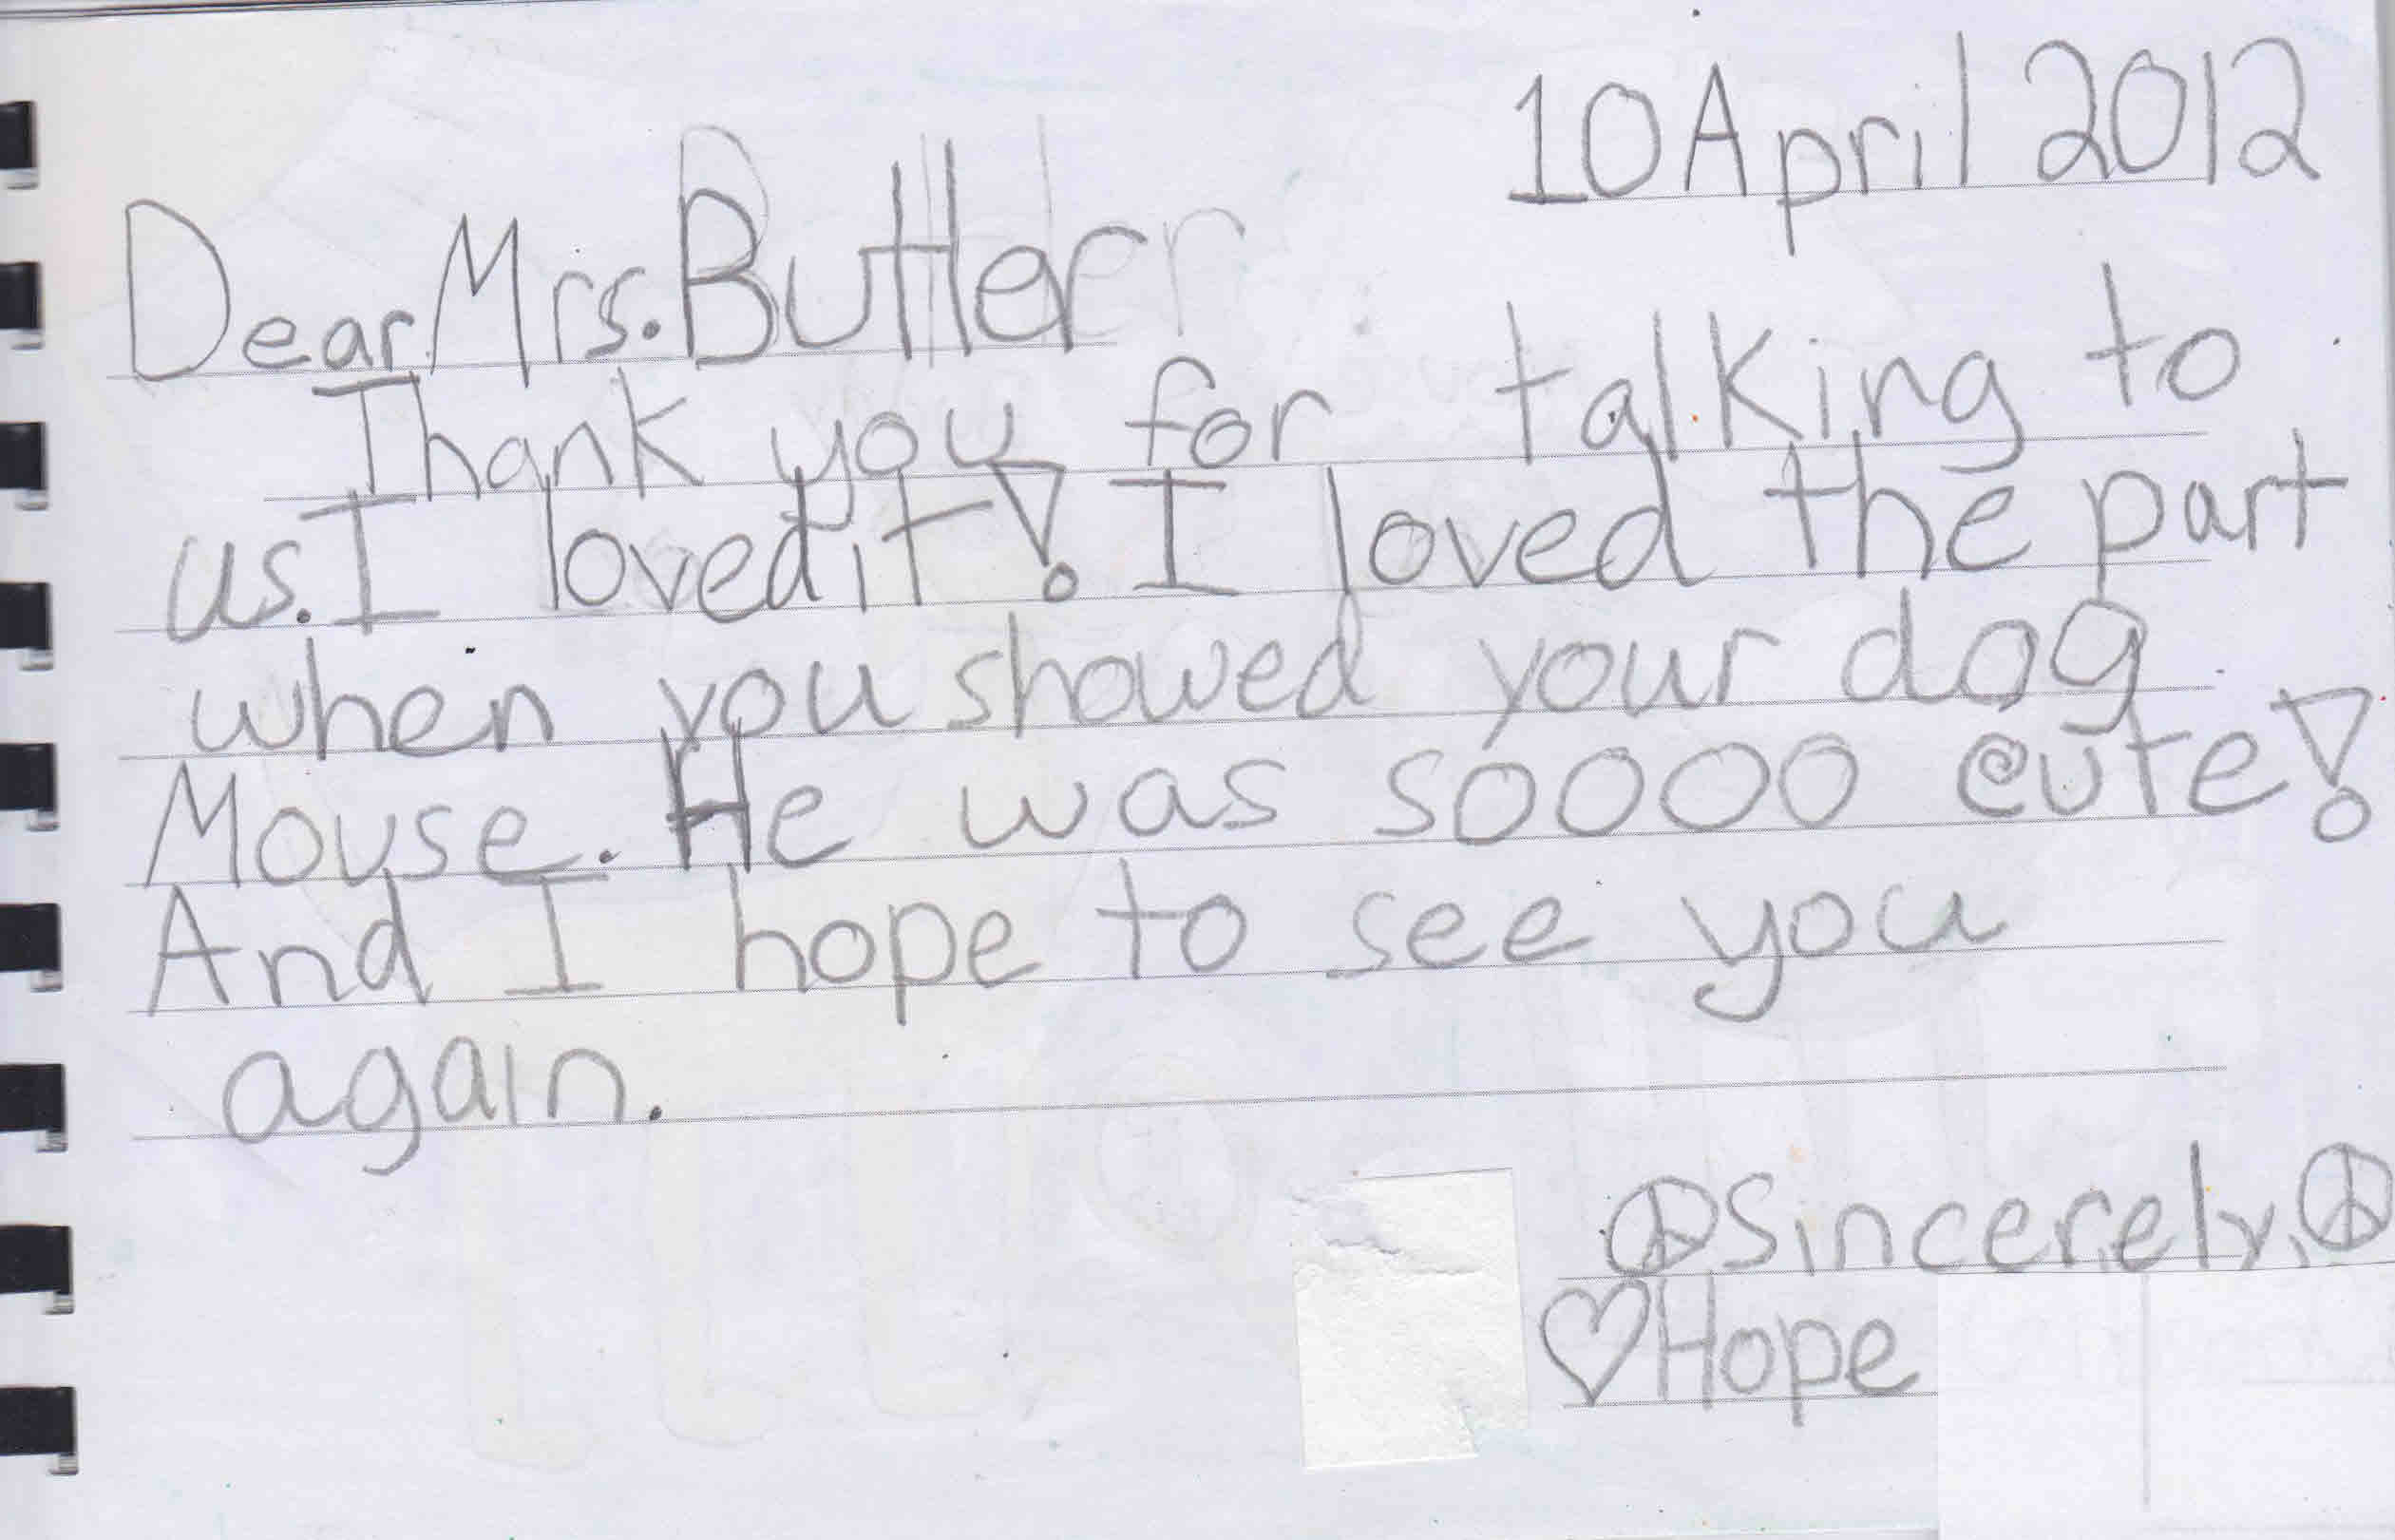 10 April 2012
Dear Mrs. Butler
Thank you for talking to
us. I loved it! I loved the part
when you showed your dog
Mouse. He was soooo cute!
And I hope to see you
again.
☮Sincerely,☮
♡Hope